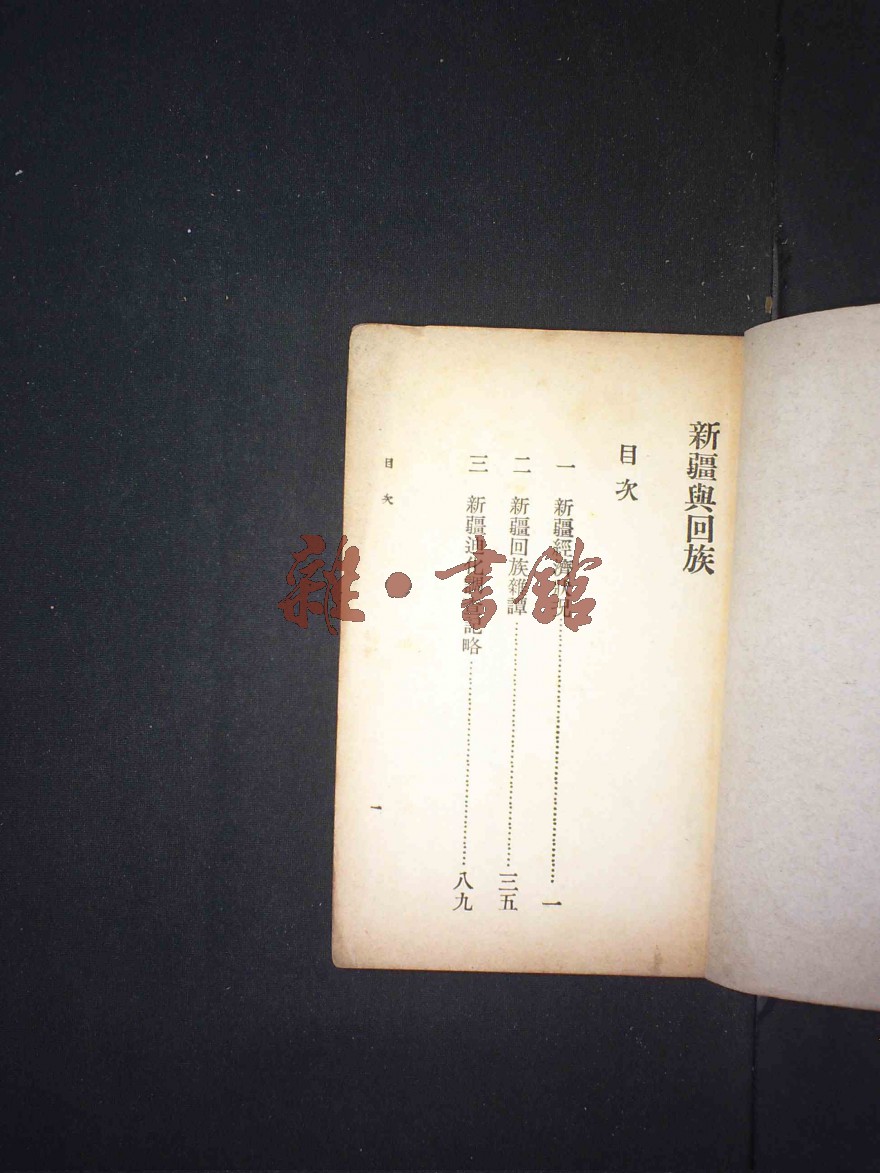 新疆與回族
目次
一 新疆經濟狀况…………一
二 新疆回族雜譚…………三五
三 新疆迪化調查記略…………八九
目次
一
雜·書館